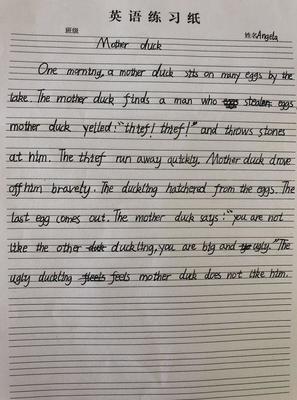 英语练习纸
班级 姓名 Angela
Mother duck
One morning, a mother duck sits on many eggs by the
lake. The mother duck finds a man who eggs stealen eggs.
mother duck yelled: "thief! thief!" and throws stones
at him. The thief run away quickly. Mother duck drove
off him bravely. The duckling hatchered from the eggs. The
last egg comes out. The mother duck says: "you are not
like the other duck duckling, you are big and ugly." The
ugly duckling fleels feels mother duck does not like him.